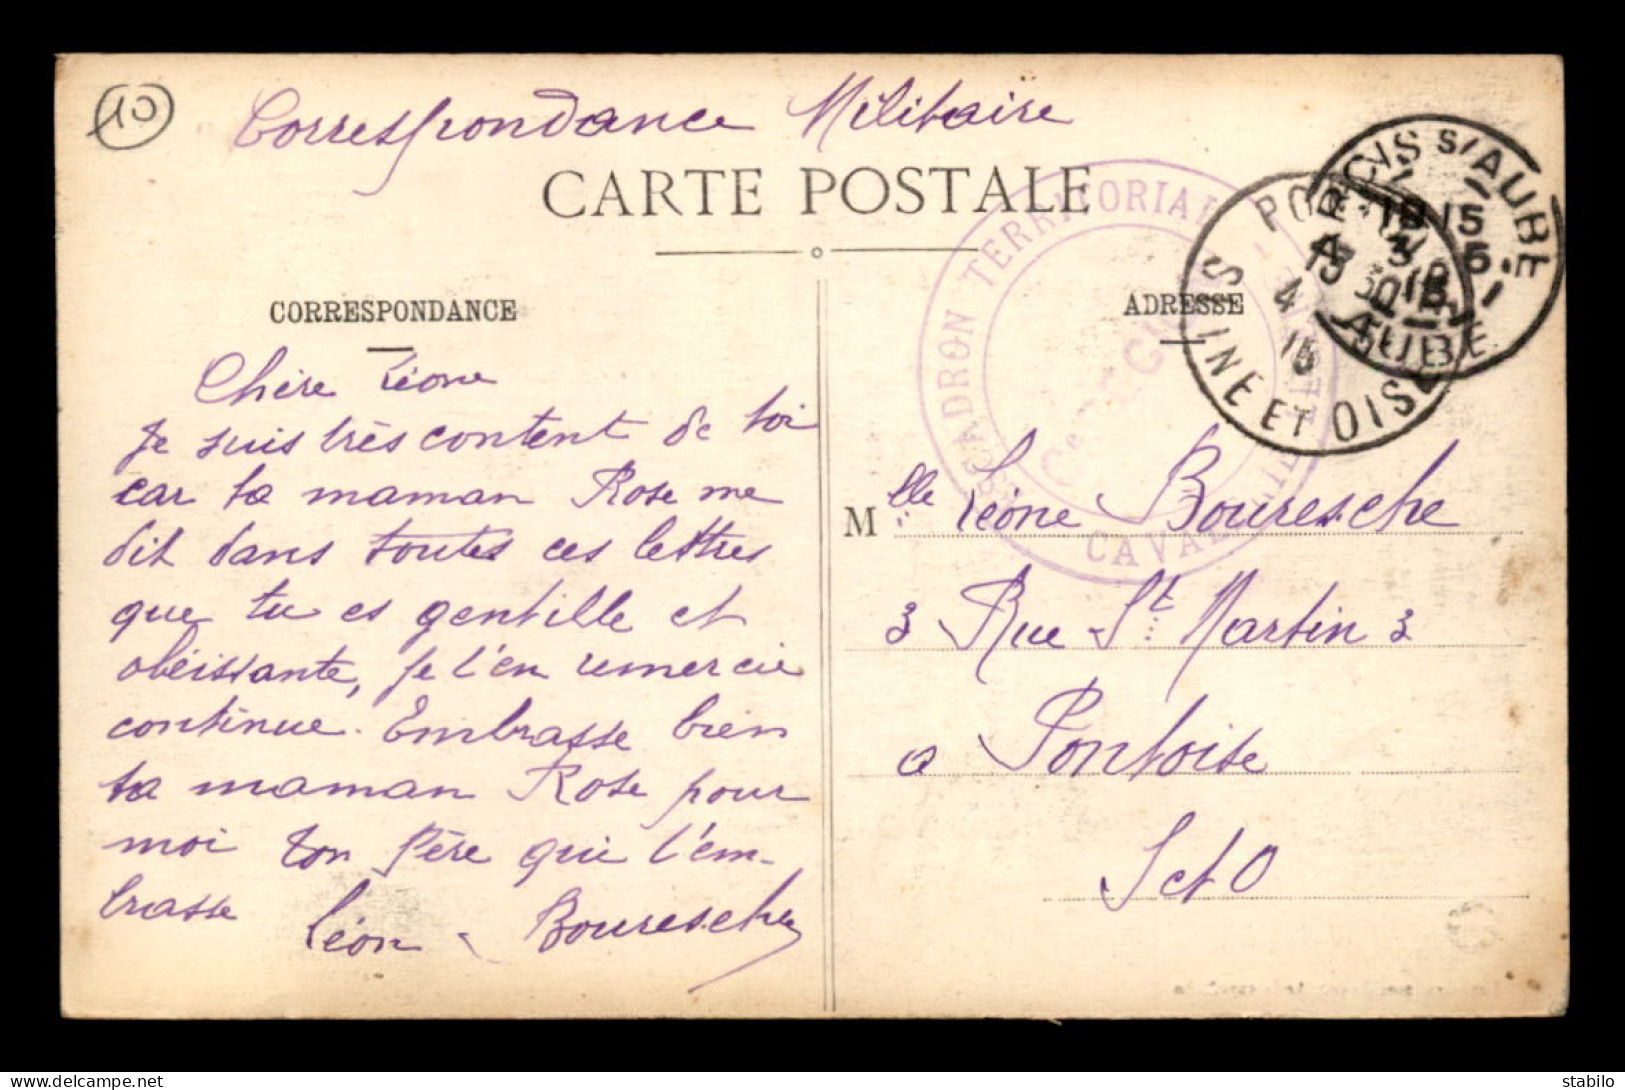 10
Correspondance Militaire
CARTE POSTALE
CORRESPONDANCE
Chère Léone
Je suis très content de toi
car ta maman Rose me
dit dans toutes ces lettres
que tu es gentille et
obéissante, je t'en remercie
continue. Embrasse bien
ta maman Rose pour
moi ton Père qui t'em-
brasse
Léon Bouresche
ADRESSE
ESCADRON TERRITORIAL
CAVALERIE
S/AUBE
AUBE
SEINE ET OISE
Mlle Léone Bouresche
3 Rue St Martin 3
a Pontoise
S et O
delcampe.net
stabilo